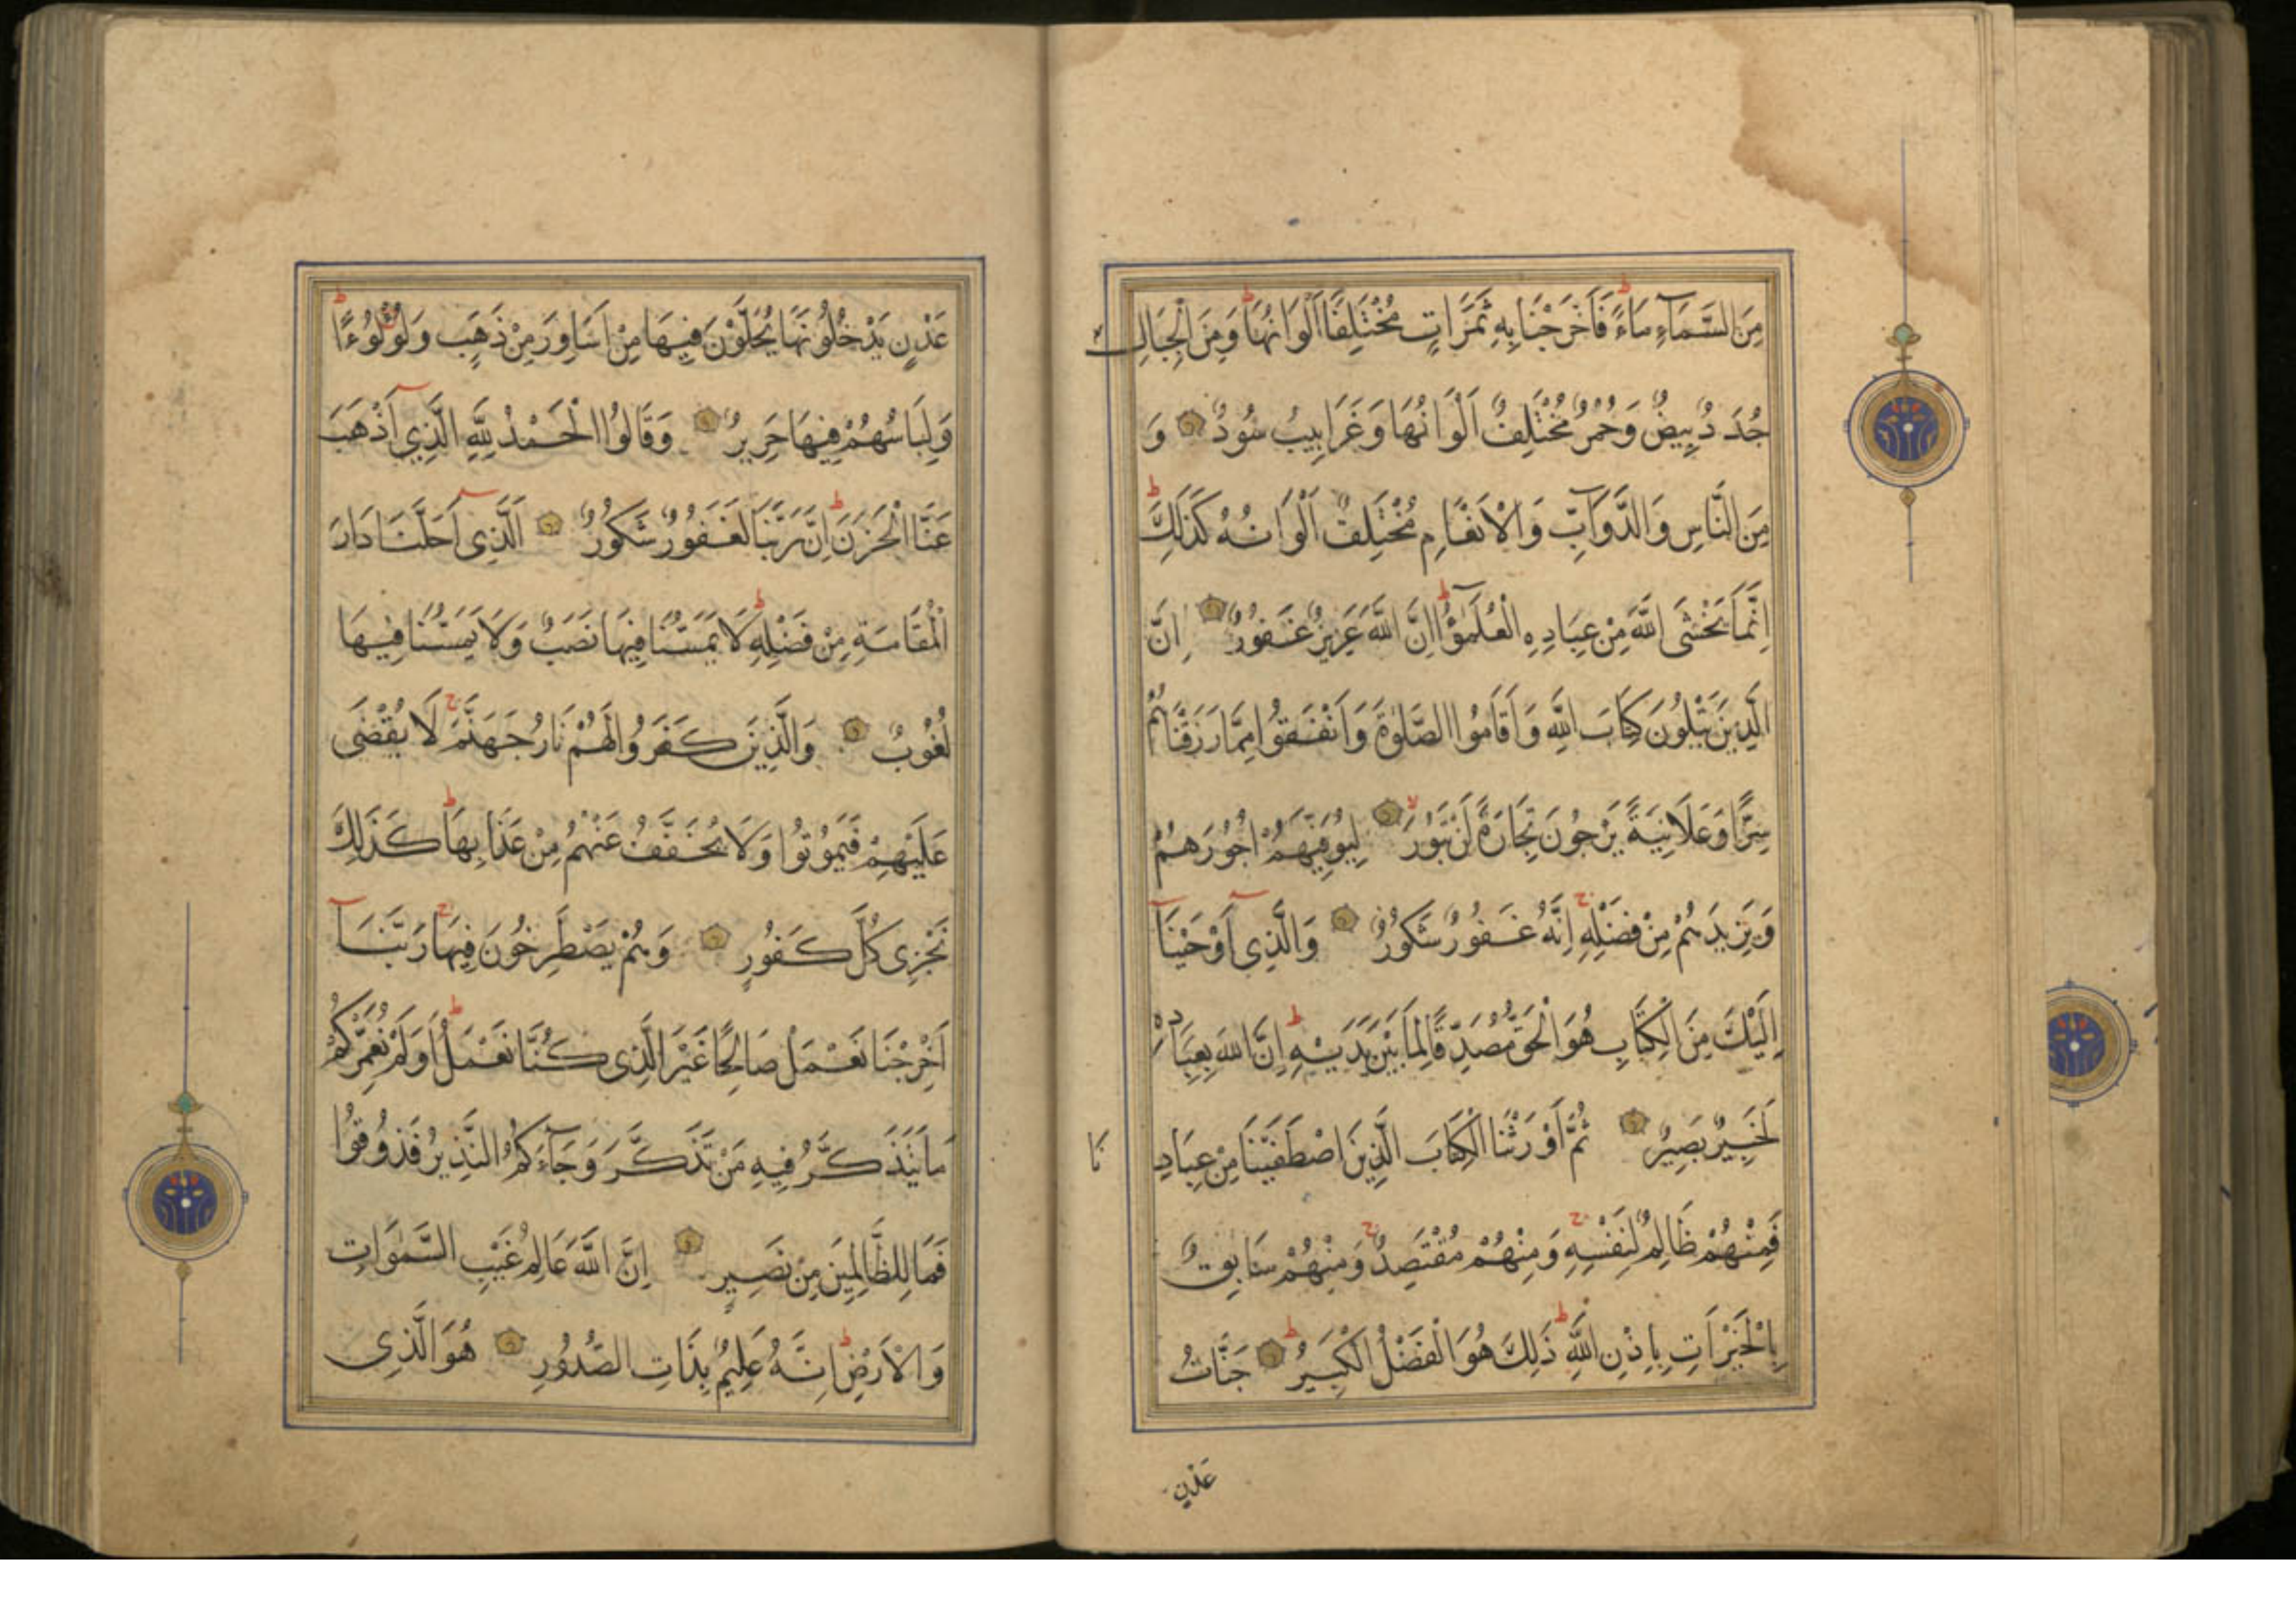 مِنَ السَّمَآءِ مَاءً فَاَخْرَجْنَا بِهِ ثَمَرَاتٍ مُخْتَلِفًا اَلْوَانُهَا وَمِنَ الْجِبَالِ
جُدَدٌ بِيضٌ وَحُمْرٌ مُخْتَلِفٌ اَلْوَانُهَا وَغَرَابِيبُ سُودٌ وَ
مِنَ النَّاسِ وَالدَّوَآبِّ وَالْاَنْعَامِ مُخْتَلِفٌ اَلْوَانُهُ كَذَلِكَ
اِنَّمَا يَخْشَى اللَّهَ مِنْ عِبَادِهِ الْعُلَمٰٓؤُا اِنَّ اللَّهَ عَزِيزٌ غَفُورٌ اِنَّ
الَّذِينَ يَتْلُونَ كِتَابَ اللَّهِ وَاَقَامُوا الصَّلٰوةَ وَاَنْفَقُوا مِمَّا رَزَقْنَاهُمْ
سِرًّا وَعَلَانِيَةً يَرْجُونَ تِجَارَةً لَنْ تَبُورَ لِيُوَفِّيَهُمْ اُجُورَهُمْ
وَيَزِيدَهُمْ مِنْ فَضْلِهِ اِنَّهُ غَفُورٌ شَكُورٌ وَالَّذِي اَوْحَيْنَا
اِلَيْكَ مِنَ الْكِتَابِ هُوَ الْحَقُّ مُصَدِّقًا لِمَا بَيْنَ يَدَيْهِ اِنَّ اللَّهَ بِعِبَادِهِ
لَخَبِيرٌ بَصِيرٌ ثُمَّ اَوْرَثْنَا الْكِتَابَ الَّذِينَ اصْطَفَيْنَا مِنْ عِبَادِنَا
فَمِنْهُمْ ظَالِمٌ لِنَفْسِهِ وَمِنْهُمْ مُقْتَصِدٌ وَمِنْهُمْ سَابِقٌ
بِالْخَيْرَاتِ بِاِذْنِ اللَّهِ ذَلِكَ هُوَ الْفَضْلُ الْكَبِيرُ جَنَّاتُ
عَدْنٍ
عَدْنٍ يَدْخُلُونَهَا يُحَلَّوْنَ فِيهَا مِنْ اَسَاوِرَ مِنْ ذَهَبٍ وَلُؤْلُؤًا
وَلِبَاسُهُمْ فِيهَا حَرِيرٌ وَقَالُوا الْحَمْدُ لِلَّهِ الَّذِي اَذْهَبَ
عَنَّا الْحَزَنَ اِنَّ رَبَّنَا لَغَفُورٌ شَكُورٌ اَلَّذِي اَحَلَّنَا دَارَ
الْمُقَامَةِ مِنْ فَضْلِهِ لَا يَمَسُّنَا فِيهَا نَصَبٌ وَلَا يَمَسُّنَا فِيهَا
لُغُوبٌ وَالَّذِينَ كَفَرُوا لَهُمْ نَارُ جَهَنَّمَ لَا يُقْضَى
عَلَيْهِمْ فَيَمُوتُوا وَلَا يُخَفَّفُ عَنْهُمْ مِنْ عَذَابِهَا كَذَلِكَ
نَجْزِي كُلَّ كَفُورٍ وَهُمْ يَصْطَرِخُونَ فِيهَا رَبَّنَا
اَخْرِجْنَا نَعْمَلْ صَالِحًا غَيْرَ الَّذِي كُنَّا نَعْمَلُ اَوَلَمْ نُعَمِّرْكُمْ
مَا يَتَذَكَّرُ فِيهِ مَنْ تَذَكَّرَ وَجَآءَكُمُ النَّذِيرُ فَذُوقُوا
فَمَا لِلظَّالِمِينَ مِنْ نَصِيرٍ اِنَّ اللَّهَ عَالِمُ غَيْبِ السَّمٰوَاتِ
وَالْاَرْضِ اِنَّهُ عَلِيمٌ بِذَاتِ الصُّدُورِ هُوَ الَّذِي